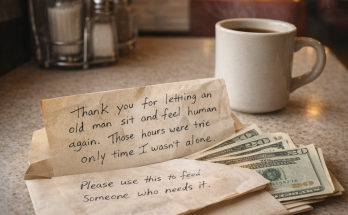 Thank you for letting an
old man sit and feel human
again. Those hours were trie
only time I wasn't alone.
Please use this to feed
Someone who needs it.